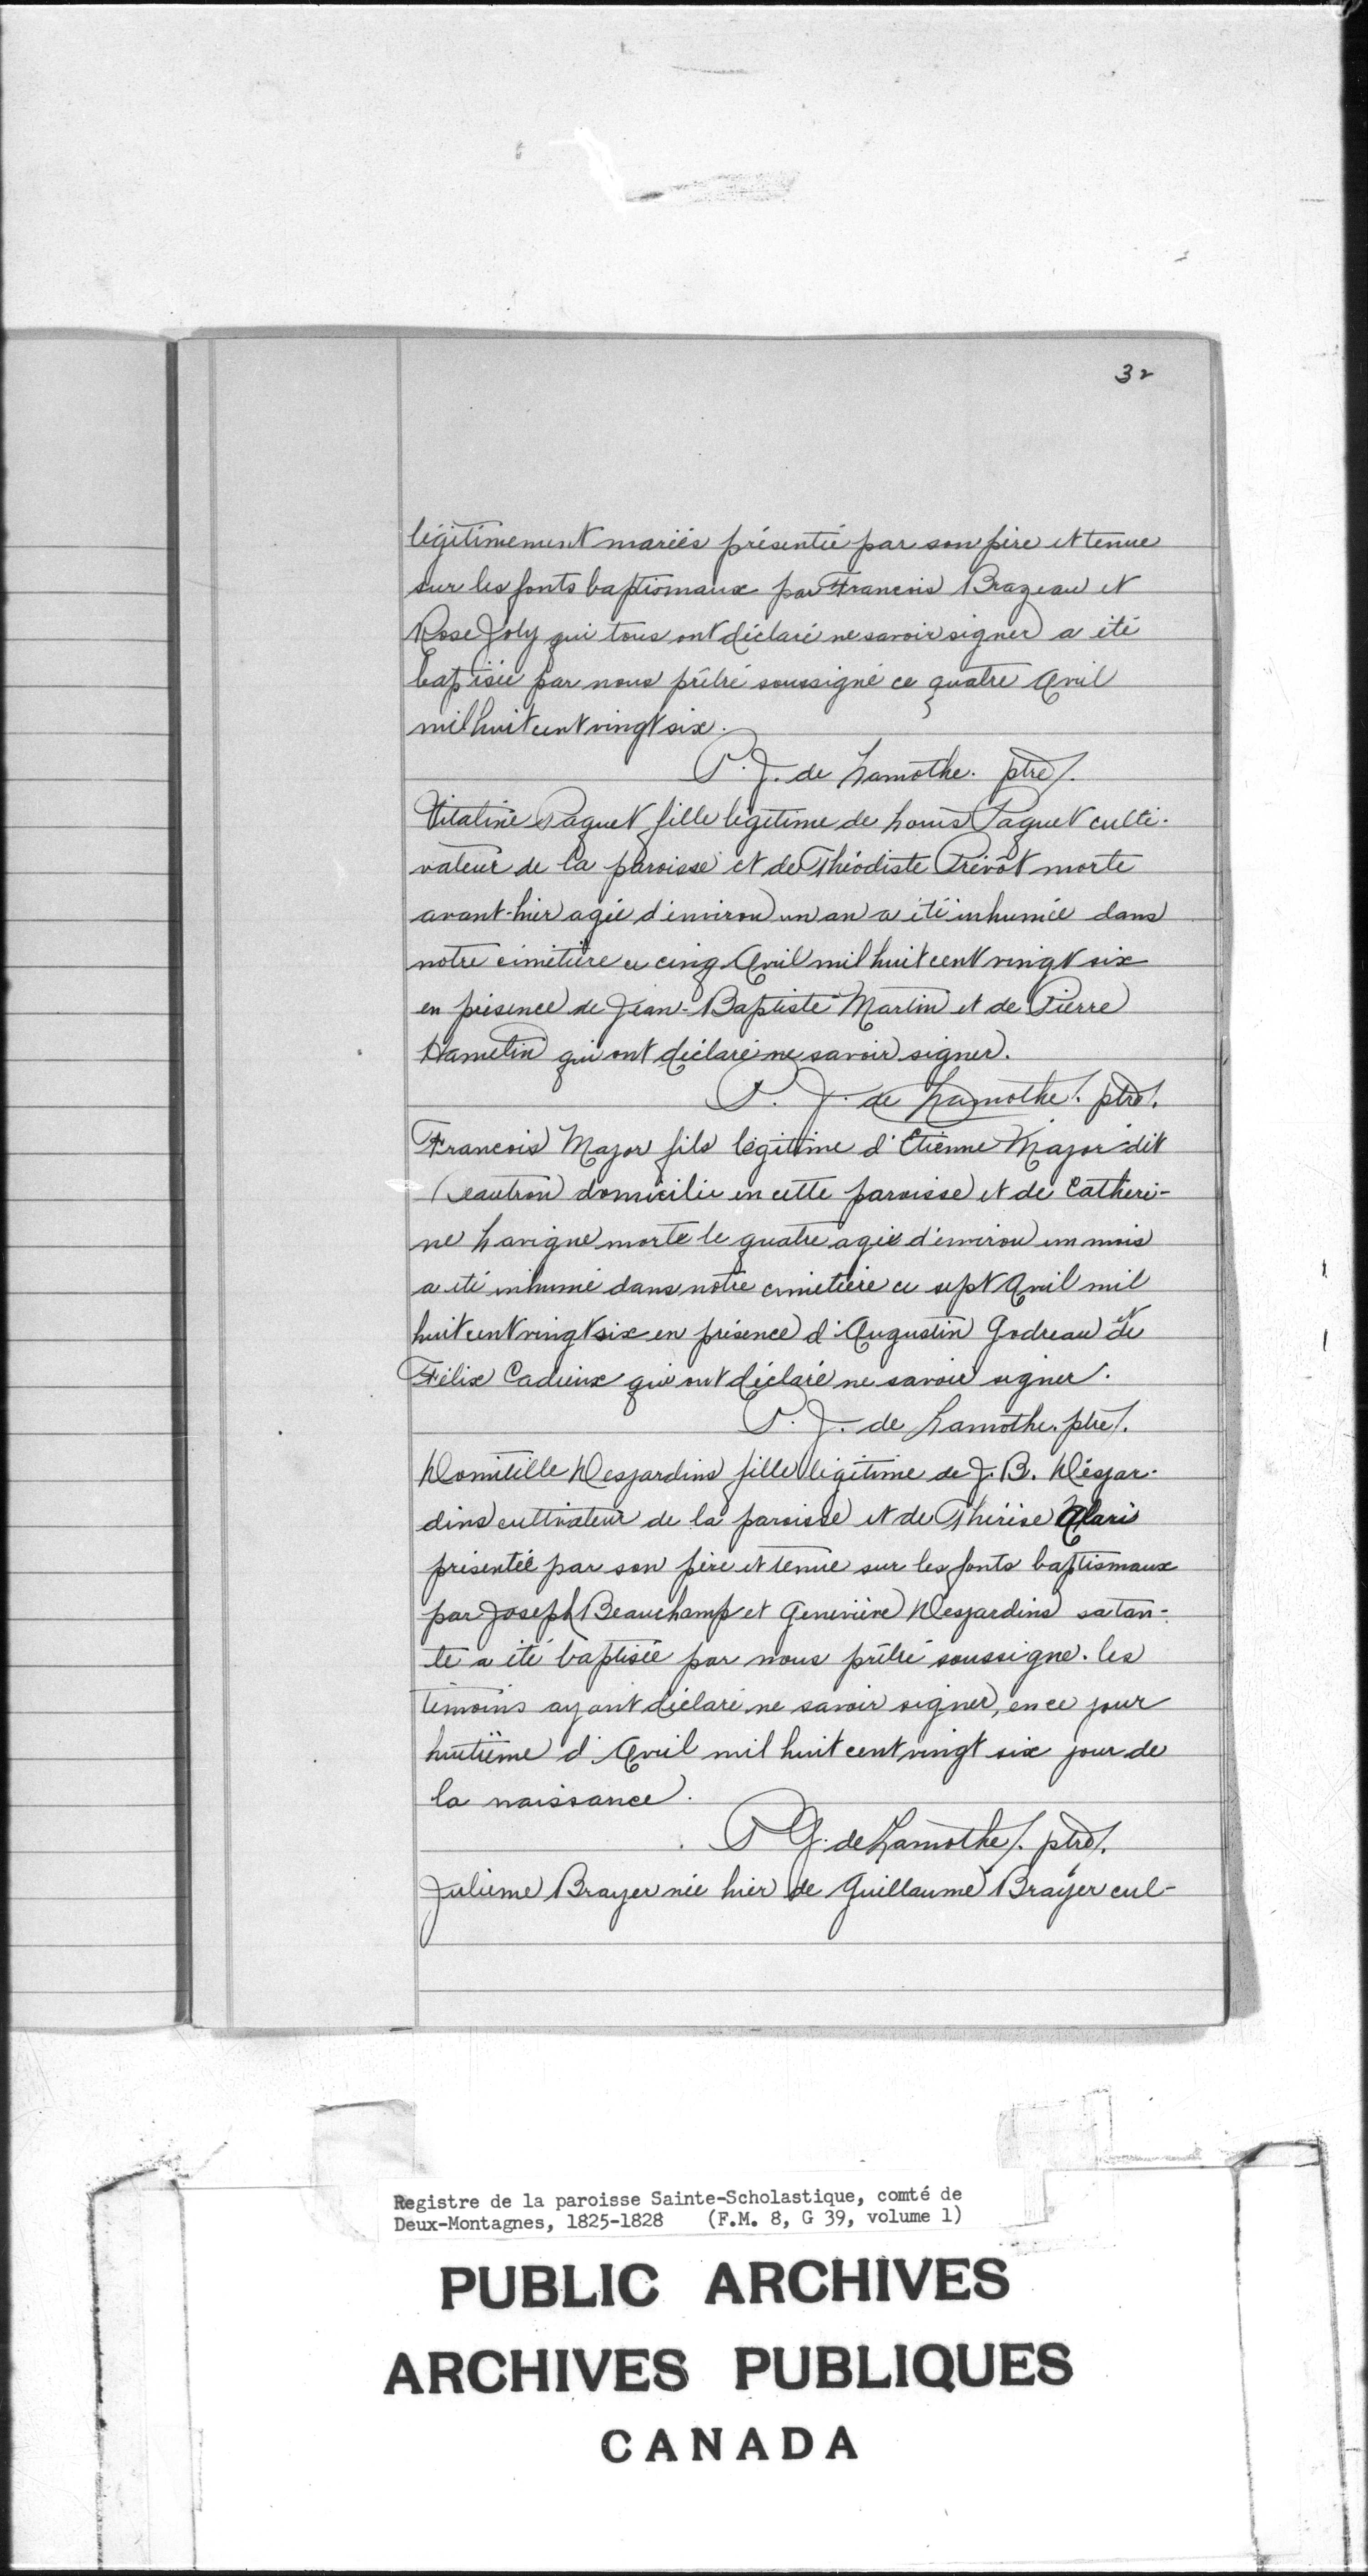 32
légitimement mariés présentée par son père et tenue
sur les fonts baptismaux par Francois Brazeau et
Rose Joly qui tous ont déclaré ne savoir signer a été
baptisée par nous prêtre soussigné ce quatre Avril
mil huit cent vingt six.
P. J. de Lamothe. ptre/.
Vitaline Paquet fille légitime de Louis Paquet culti-
vateur de la paroisse et de Théodiste Prévôt morte
avant-hier agée d'environ un an a été inhumée dans
notre cimetière ce cinq Avril mil huit cent vingt six
en présence de Jean-Baptiste Martin et de Pierre
Hamelin qui ont déclaré ne savoir signer.
P. J. de Lamothe/. ptre/.
Francois Major fils légitime d'Etienne Major dit
domicilié en cette paroisse et de Catheri-
ne Lavigne morte le quatre agée d'environ un mois
a été inhumé dans notre cimetière ce sept Avril mil
huit cent vingt six en présence d'Augustin Godreau et de
Félix Cadieux qui ont déclaré ne savoir signer.
P. J. de Lamothe. ptre/.
Domitille Desjardins fille légitime de J. B. Désjar-
dins cultivateur de la paroisse et de Thérèse Alari
présentée par son père et tenue sur les fonts baptismaux
par Joseph Beauchamp et Geneviève Desjardins sa tan-
te a été baptisée par nous prêtre soussigne. les
témoins ayant déclaré ne savoir signer, en ce jour
huitième d'Avril mil huit cent vingt six jour de
la naissance.
P J. de Lamothe/. ptre/.
Julienne Brayer née hier de Guillaume Brayer cul-
Registre de la paroisse Sainte-Scholastique, comté de
Deux-Montagnes, 1825-1828 (F.M. 8, G 39, volume 1)
PUBLIC ARCHIVES
ARCHIVES PUBLIQUES
CANADA